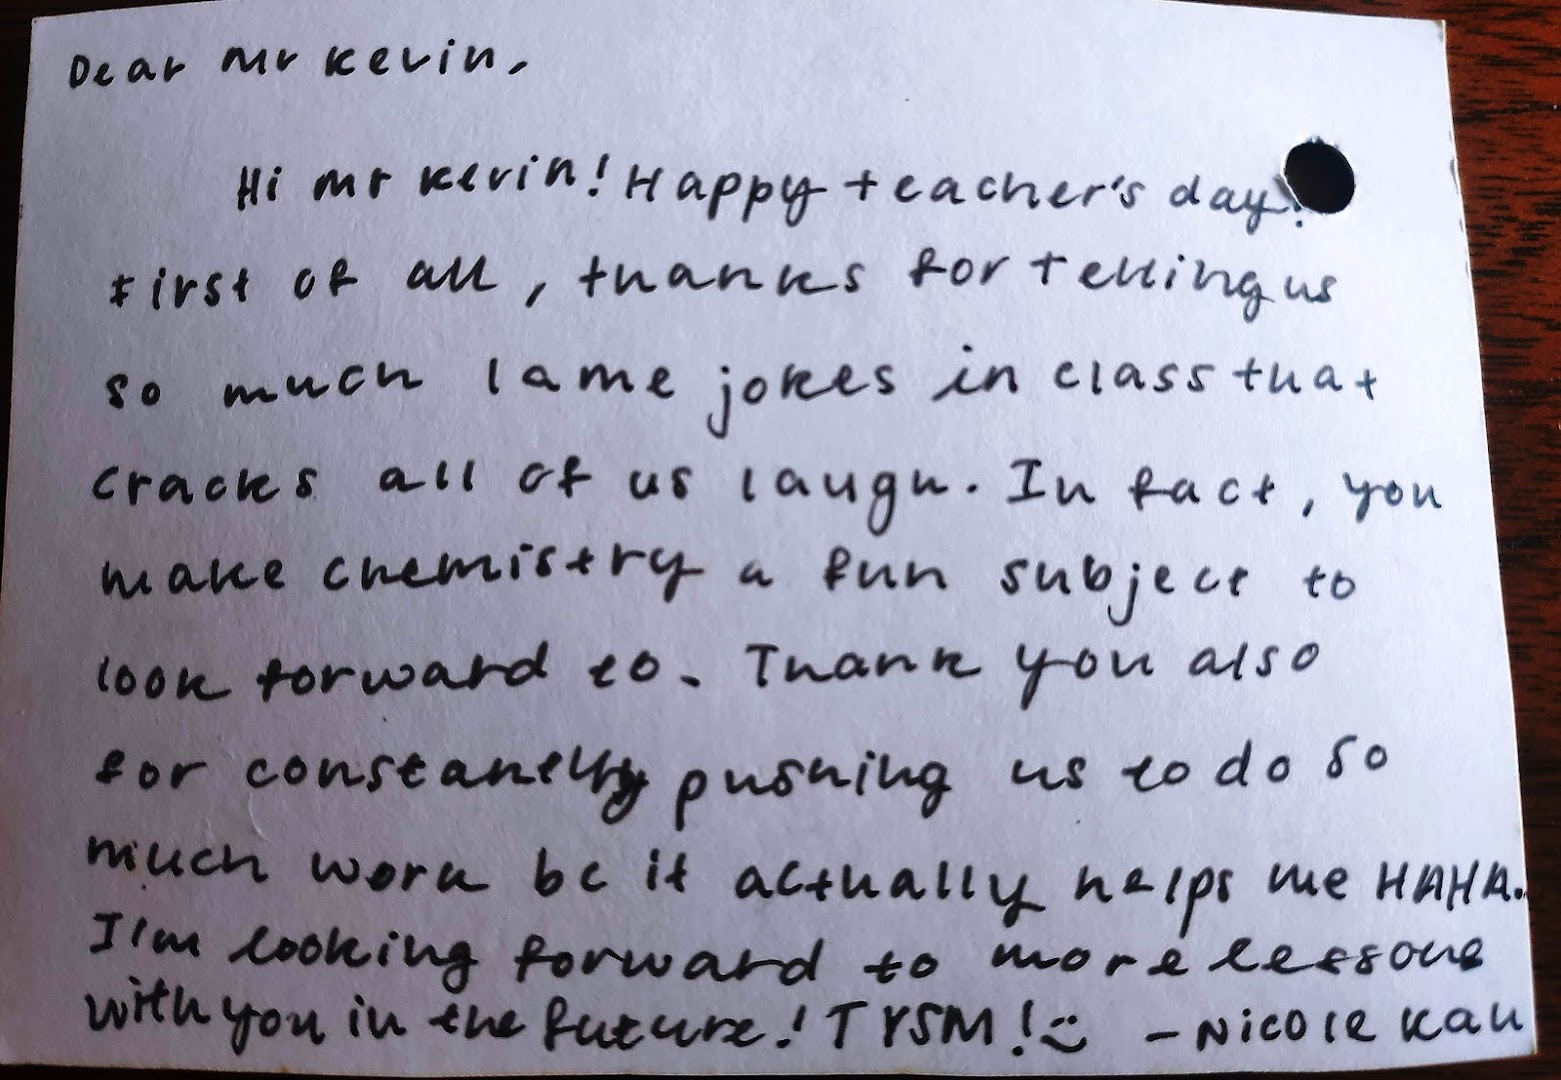 Dear Mr Kevin,
Hi Mr Kevin! Happy teacher's day!
First of all, thanks for telling us
so much lame jokes in class that
cracks all of us laugh. In fact, you
make chemistry a fun subject to
look forward to. Thank you also
for constantly pushing us to do so
much work bc it actually helps me HAHA.
I'm looking forward to more lessons
with you in the future! TYSM! :) - Nicole